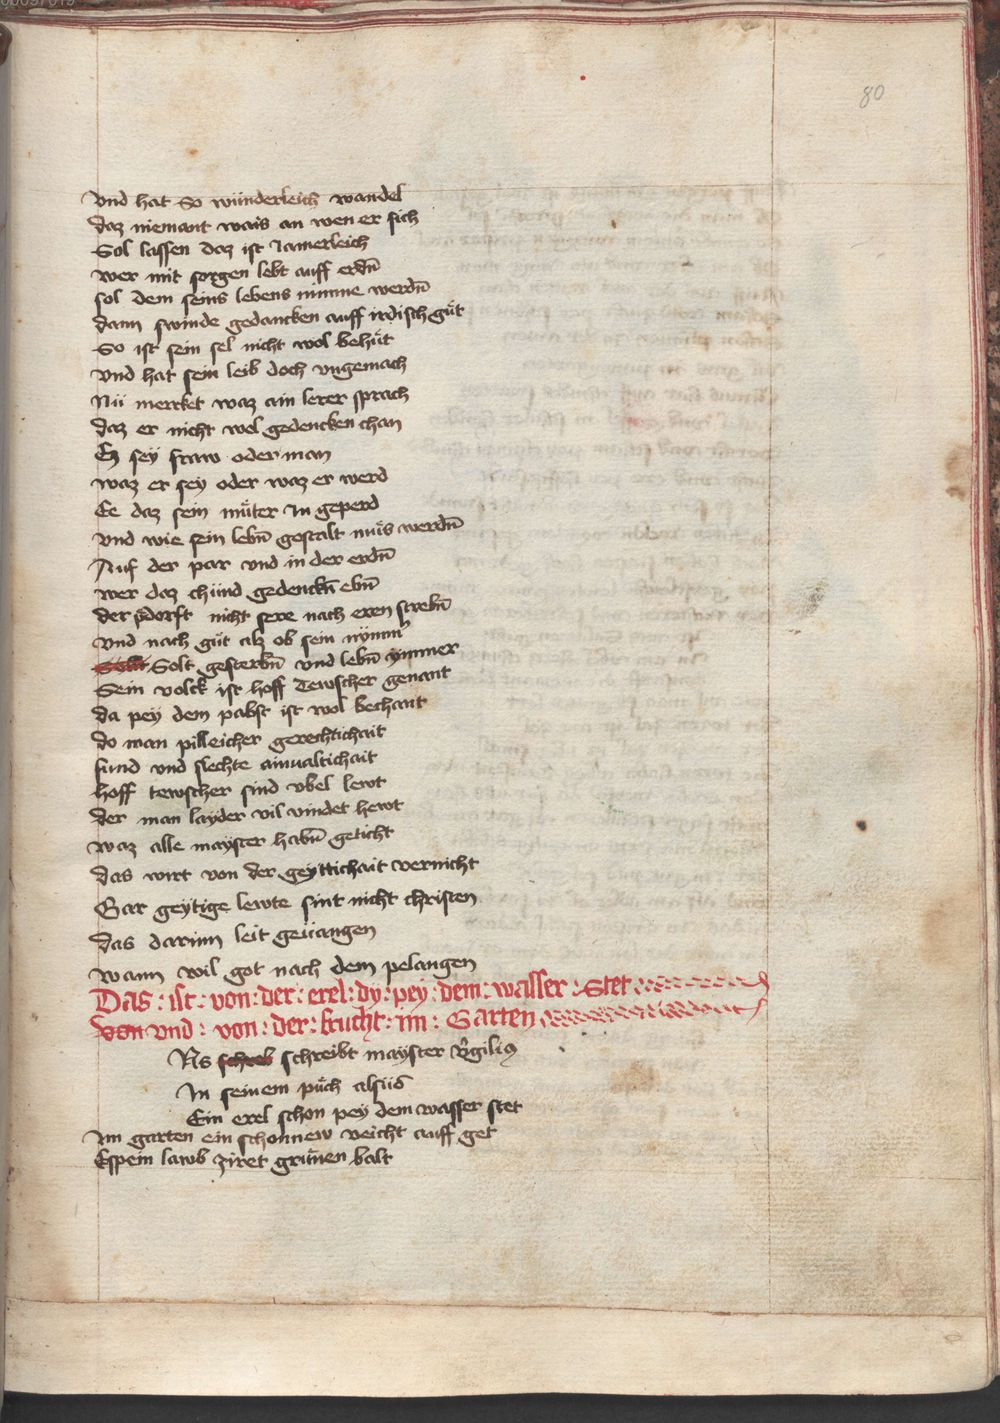 80
vnd hat So wunderleich wandel
daz niemant wais an wen er sich
Sol lassen daz ist Jamerleich
wer mit sorgen lebt auff erdn̄
sol dem seins lebens nimne werdn̄
dann swinde gedancken auff irdisch gůt
So ist sein sel nicht wol behůt
vnd hat sein leib doch vngemach
Nü mercket waz ain lerer sprach
daz er nicht wol gedencken chan
Ez sey fraw oder man
waz er sey oder waz er werd
Ee daz sein můter In geperd
vnd wie sein lebn̄ gestalt můs werdn̄
Auf der par vnd in der erdn̄
wer daz chünd gedenckn̄ ebn̄
der dorft nicht sere nach eren strebn̄
vnd nach gůt alz ob sein nymm̄
Solt Solt gesterbn̄ vnd lebn̄ ymmer
Sein volck ist hoff Tewscher genant
da pey dem pabst ist wol bechant
do man pilleicher gerechtichait
fund vnd slechte ainualtichait
hoff tewscher sind vbel lewt
der man layder vil vindet hewt
waz alle mayster habn̄ geticht
das wirt von der geyttichait vernicht
Gar geytige lewte sint nicht christen
das darinn leit geuangen
wann wil got nach dem pelangen
Das : ist : von : der : erel : dy : pey : dem : wasser : Stet
von vnd : von : der : frucht : im : Garten
Ns schreb schreibt mayster v̄gilius
In seinem půch alsus
Ein erel schon pey dem wasser stet
Im garten ein schonnew veicht auff get
Espein lawb ziret grünen balt